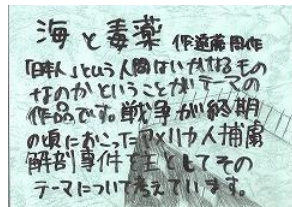 海と毒薬 作遠藤周作
「日本人」という人間はいかなるもの
なのかということがテーマの
作品です。戦争が終期
の頃におこったアメリカ人捕虜
解剖事件を主としてその
テーマについて考えています。